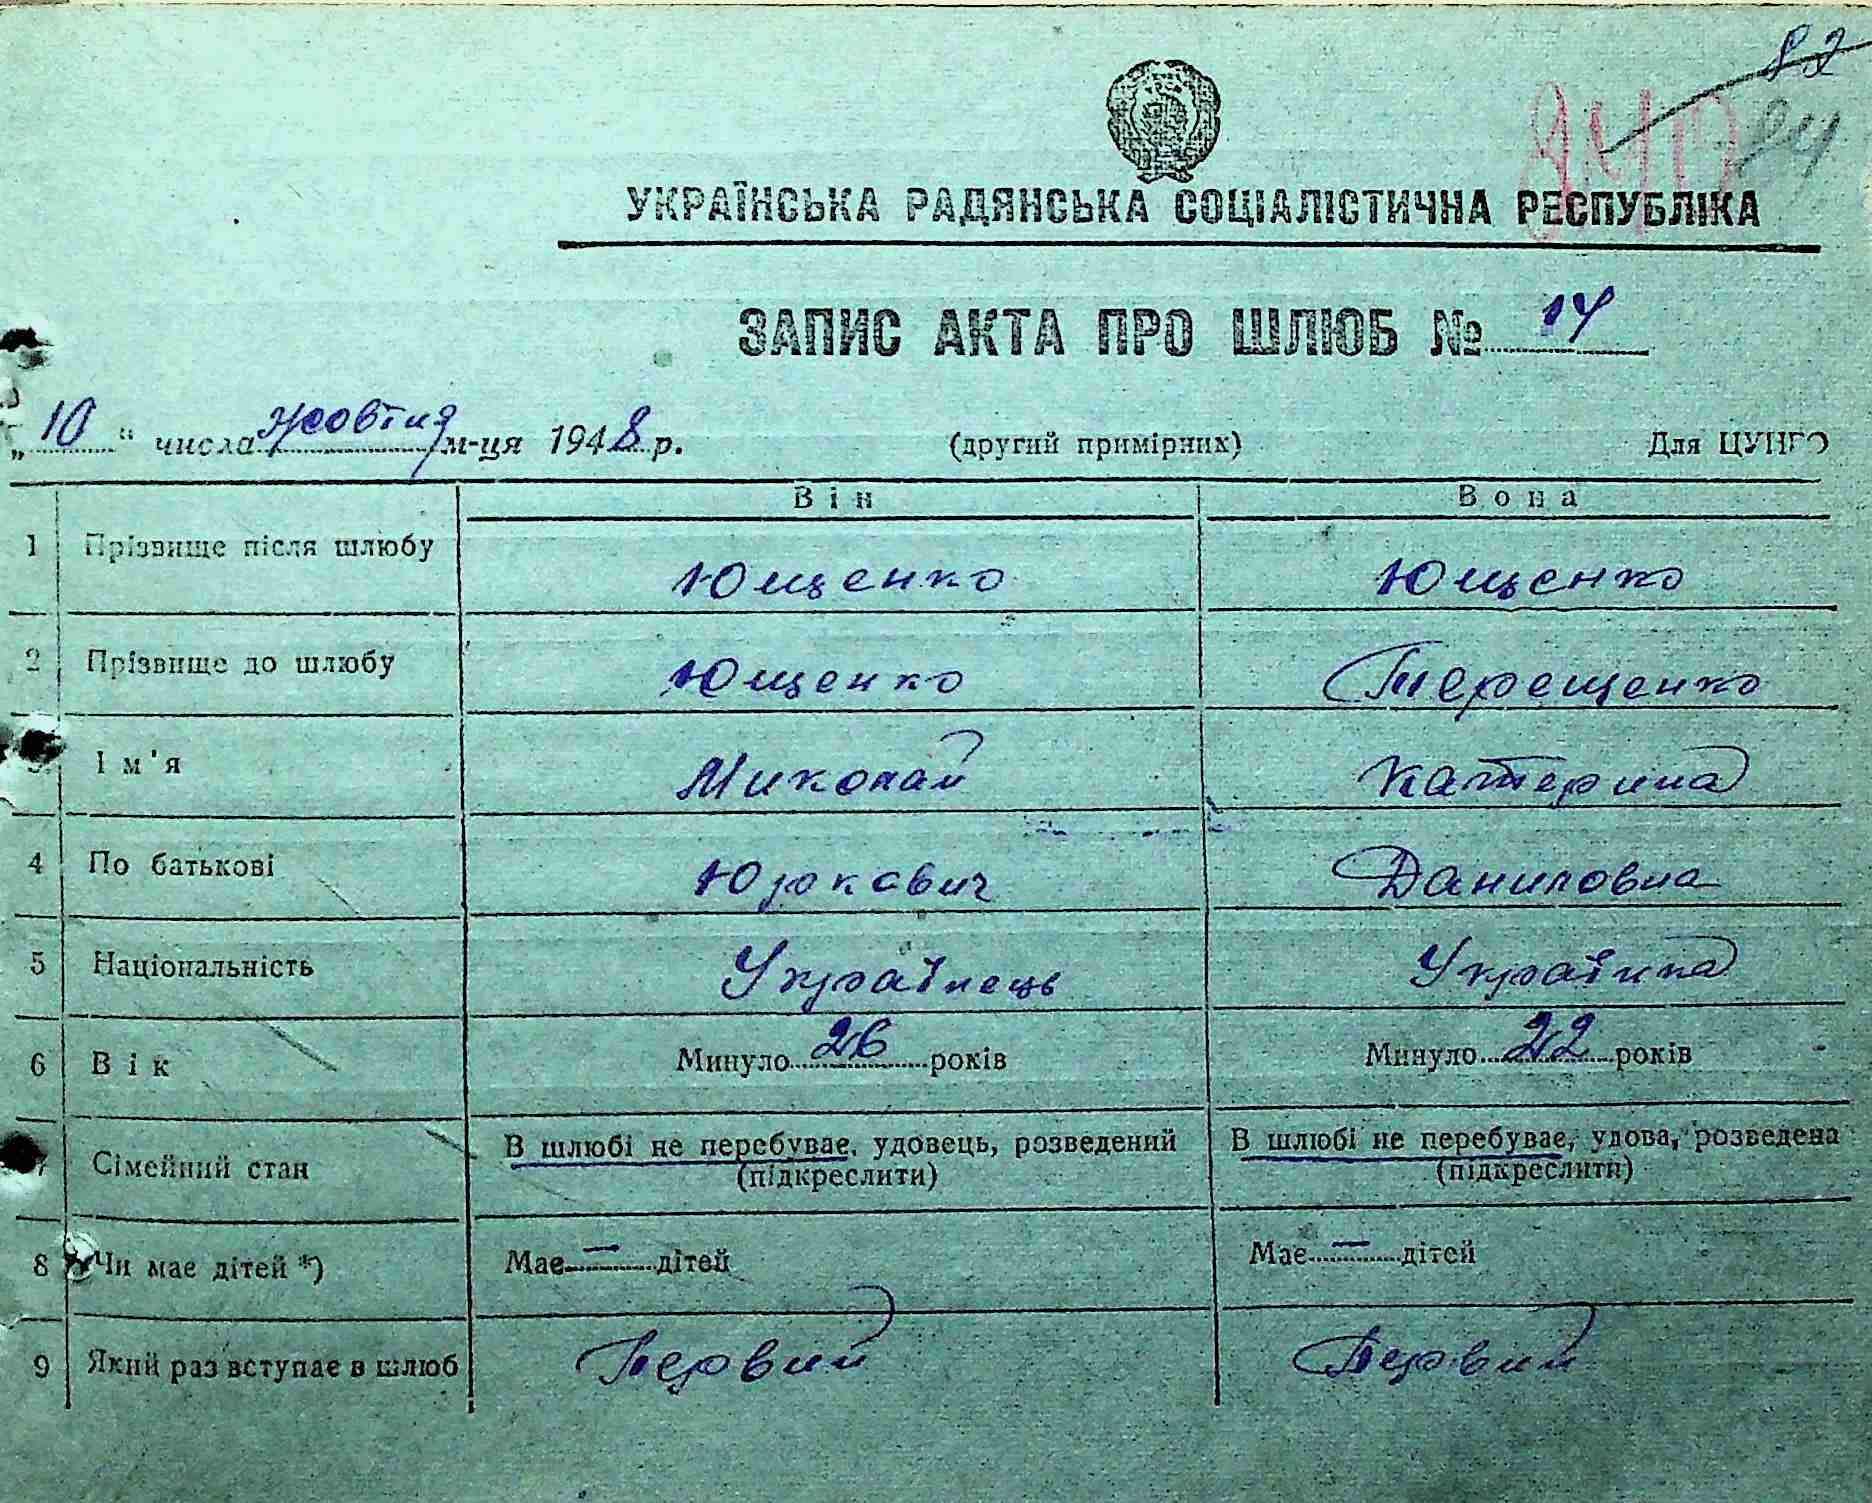 82
24
УКРАЇНСЬКА РАДЯНСЬКА СОЦІАЛІСТИЧНА РЕСПУБЛІКА
ЗАПИС АКТА ПРО ШЛЮБ № 14
„10“ числа жовтня м-ця 1948 р. (другий примірник) Для ЦУНГО
Він Вона
1 Прізвище після шлюбу Ющенко Ющенко
2 Прізвище до шлюбу Ющенко Терещенко
3 Ім'я Миколай Катерина
4 По батькові Юркавич Даниловна
5 Національність Українець Українка
6 Вік Минуло 26 років Минуло 22 років
7 Сімейний стан В шлюбі не перебуває, удовець, розведений В шлюбі не перебуває, удова, розведена
(підкреслити) (підкреслити)
8 Чи має дітей *) Має — дітей Має — дітей
9 Який раз вступає в шлюб Первий Первий